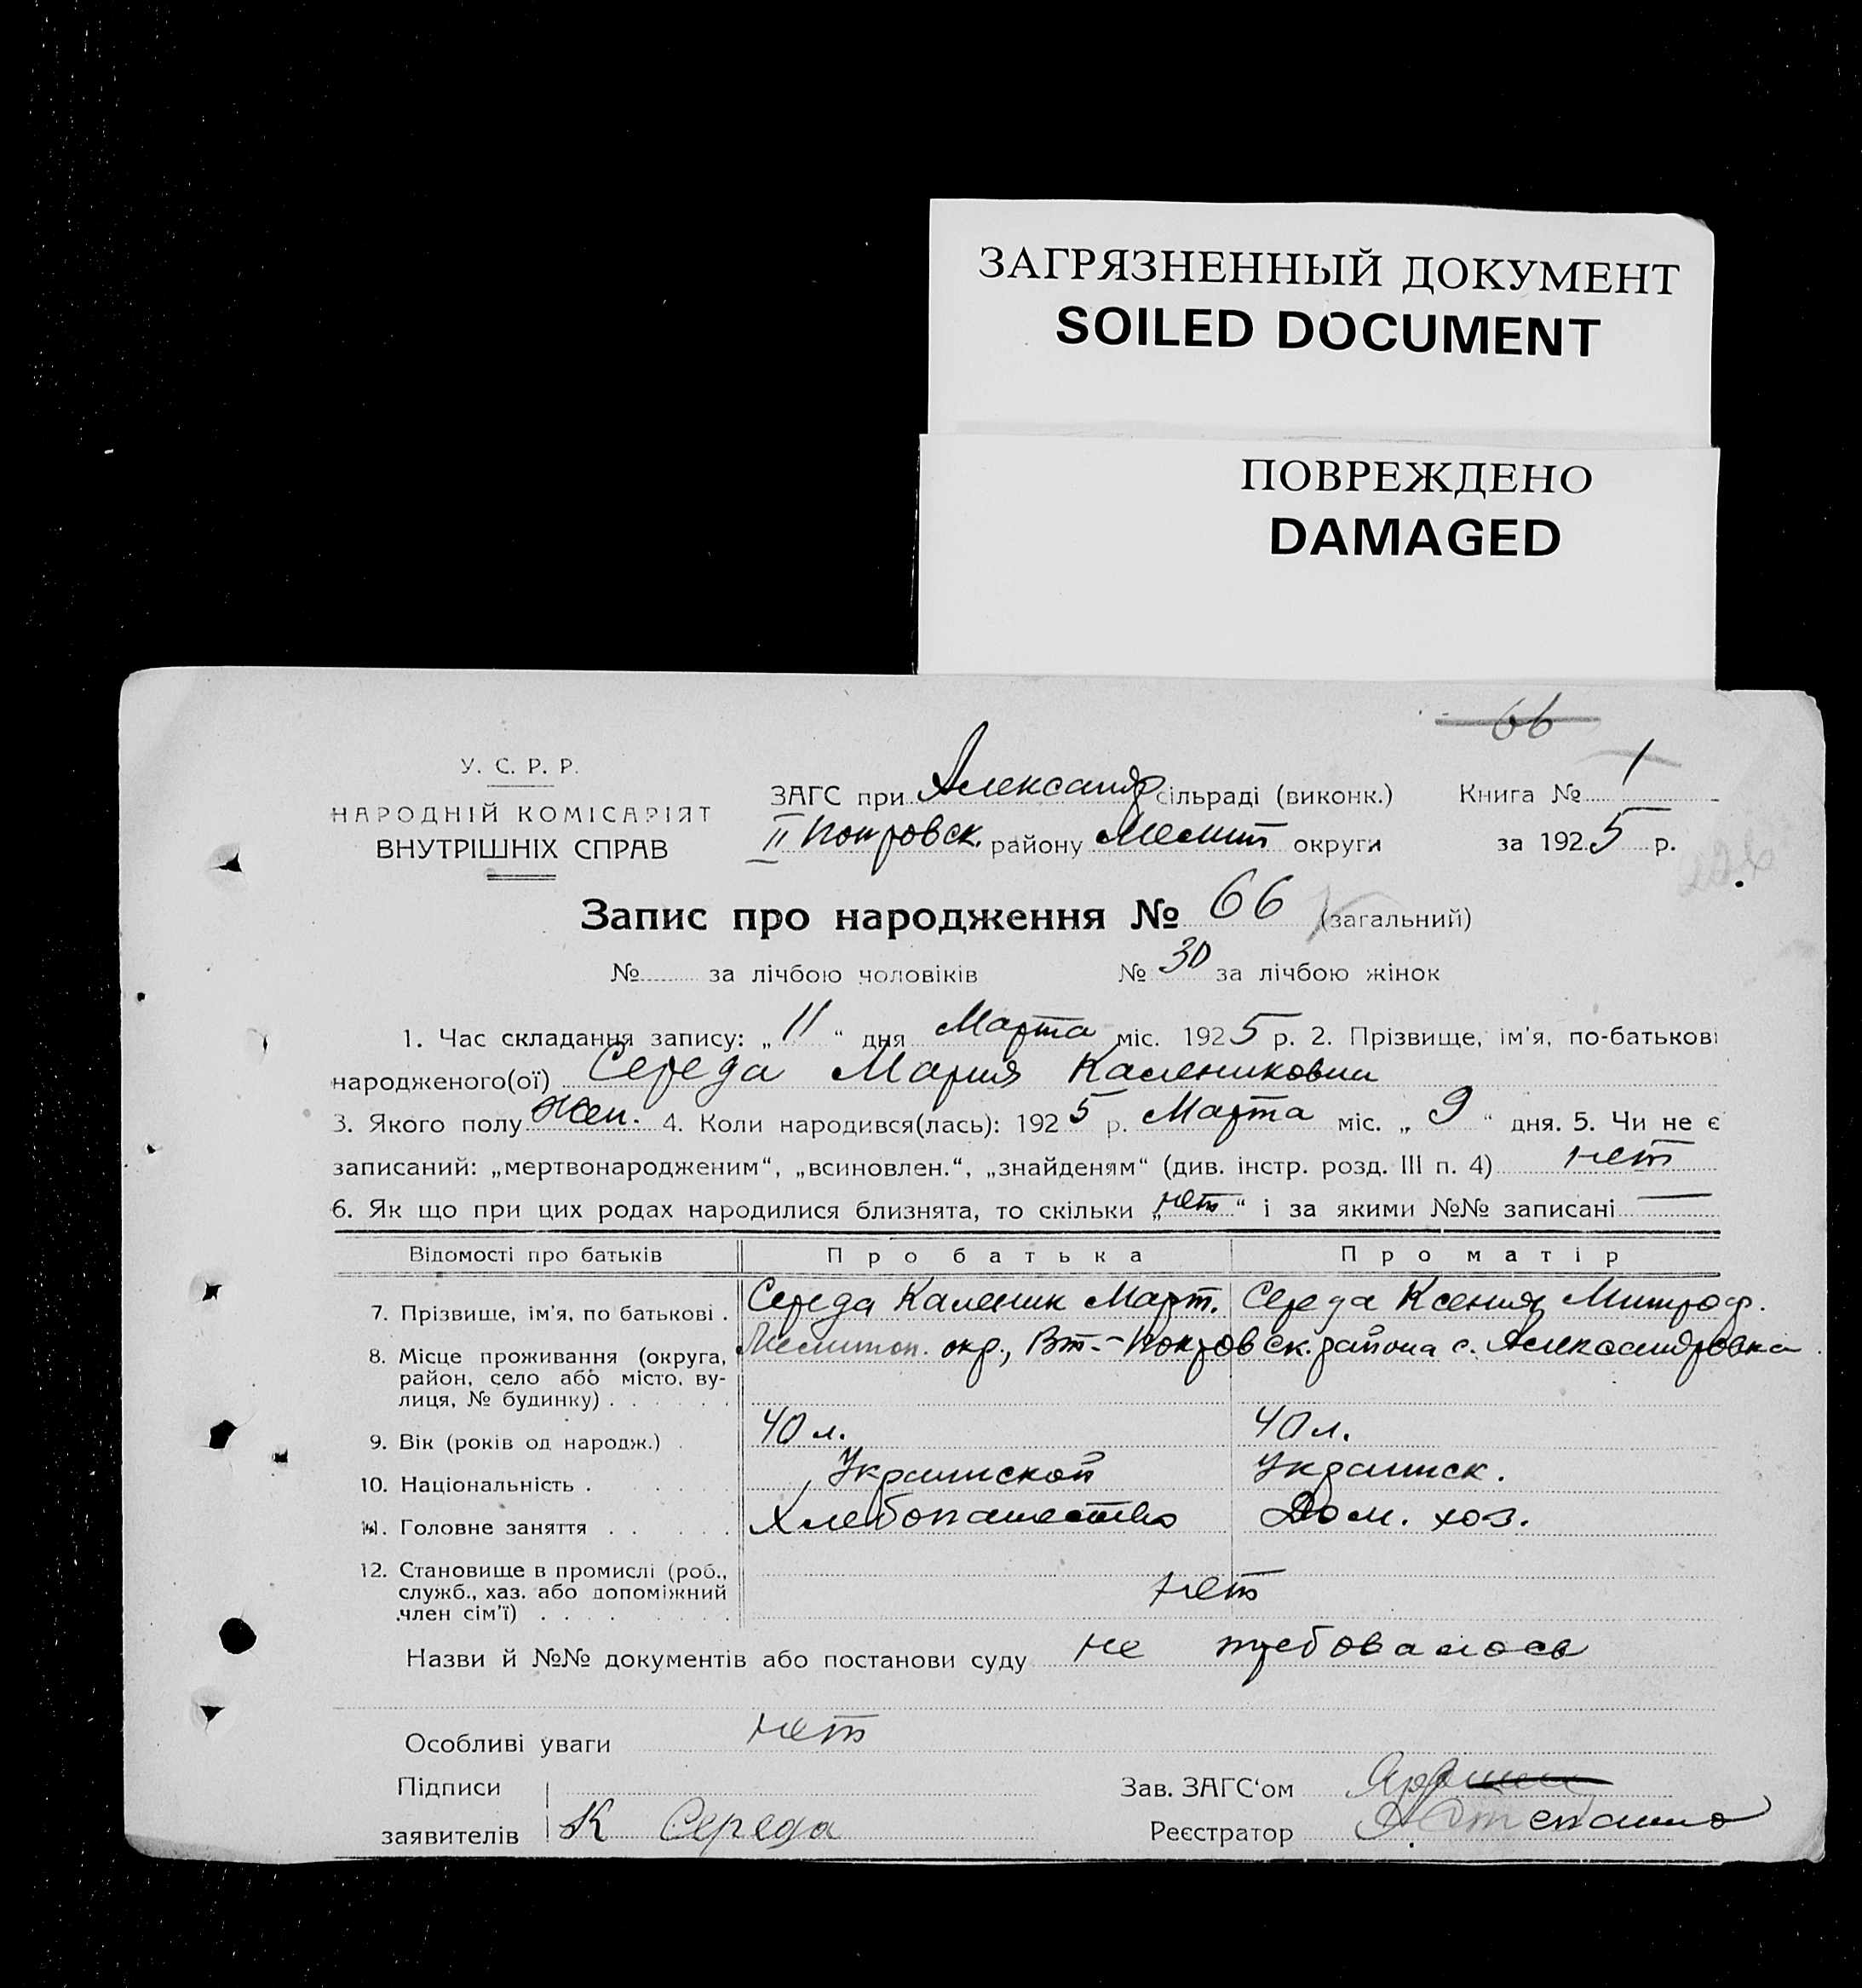 ЗАГРЯЗНЕННЫЙ ДОКУМЕНТ
SOILED DOCUMENT
ПОВРЕЖДЕНО
DAMAGED
66
У. С. Р. Р.
НАРОДНІЙ КОМІСАРІЯТ
ВНУТРІШНІХ СПРАВ
ЗАГС при Александр сільраді (виконк.) Книга № 1
II Покровск. району Мелит округи за 1925 р.
Запис про народження № 66 (загальний)
№ за лічбою чоловіків № 30 за лічбою жінок
1. Час складання запису: „11“ дня Марта міс. 1925 р. 2. Прізвище, ім'я, по-батькові
народженого(ої) Середа Мария Калениковни
3. Якого полу Жен. 4. Коли народився(лась): 1925 р. Марта міс. „9“ дня. 5. Чи не є
записаний: „мертвонародженим“, „всиновлен.“, „знайденям“ (див. інстр. розд. III п. 4) нет
6. Як що при цих родах народилися близнята, то скільки „нет“ і за якими №№ записані —
Відомості про батьків Про батька Про матір
7. Прізвище, ім'я, по батькові . Середа Каленик Март. Середа Ксения Митроф.
8. Місце проживання (округа, район, село або місто, вулиця, № будинку) Мелитоп. окр., Вт.-Покровск. района с. Александровка
9. Вік (років од народж.) . 40 л. 40 л.
10. Національність . Украинской Украинск.
11. Головне заняття . Хлебопашество Дом. хоз.
12. Становище в промислі (роб., служб., хаз. або допоміжний член сім'ї) нет
Назви й №№ документів або постанови суду не требовалось
Особливі уваги нет
Підписи Зав. ЗАГС‘ом
заявителів К Середа Реєстратор